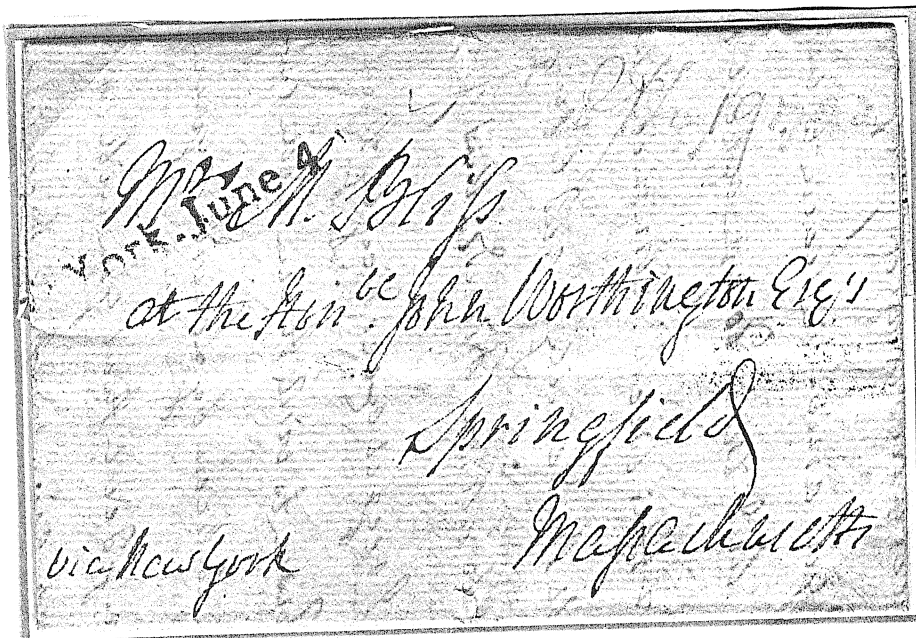 Mrs M. Bliſs
York. June 4
at the Honbe John Worthington Esq's
Springfield
Maſsachusetts
via New York